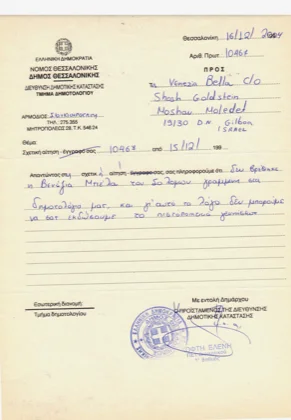 Θεσσαλονίκη, 16/12/2004
ΕΛΛΗΝΙΚΗ ΔΗΜΟΚΡΑΤΙΑ
ΝΟΜΟΣ ΘΕΣΣΑΛΟΝΙΚΗΣ
ΔΗΜΟΣ ΘΕΣΣΑΛΟΝΙΚΗΣ
ΔΙΕΥΘΥΝΣΗ ΔΗΜΟΤΙΚΗΣ ΚΑΤΑΣΤΑΣΗΣ
ΤΜΗΜΑ ΔΗΜΟΤΟΛΟΓΙΟΥ
Αριθ. Πρωτ. 10467
ΠΡΟΣ
Venezia Bella c/o
Shosh Goldstein
Moshav Moledet
19130 D.N Gilboa
ISRAEL
ΑΡΜΟΔΙΟΣ
ΤΗΛ.: 275.355
ΜΗΤΡΟΠΟΛΕΩΣ 28, Τ.Κ. 546 24
Θέμα:
Σχετική αίτηση - έγγραφό σας 10467 από 15/12/ 199
Απαντώντας στ σχετικ αίτηση - έγγραφό σας, σας πληροφορούμε ότι δεν βρέθηκε
η Βενέζια Μπέλα του Σολομών γραμμένη στα
δημοτολόγιά μας, και γι' αυτό το λόγο δεν μπορούμε
να σας εκδώσουμε το πιστοποιητικό γεννήσεως
Εσωτερική διανομή
Τμήμα δημοτολογίου
Με εντολή Δημάρχου
Ο ΠΡΟΪΣΤΑΜΕΝΟΣ ΤΗΣ ΔΙΕΥΘΥΝΣΗΣ
ΔΗΜΟΤΙΚΗΣ ΚΑΤΑΣΤΑΣΗΣ
ΕΛΕΝΗ